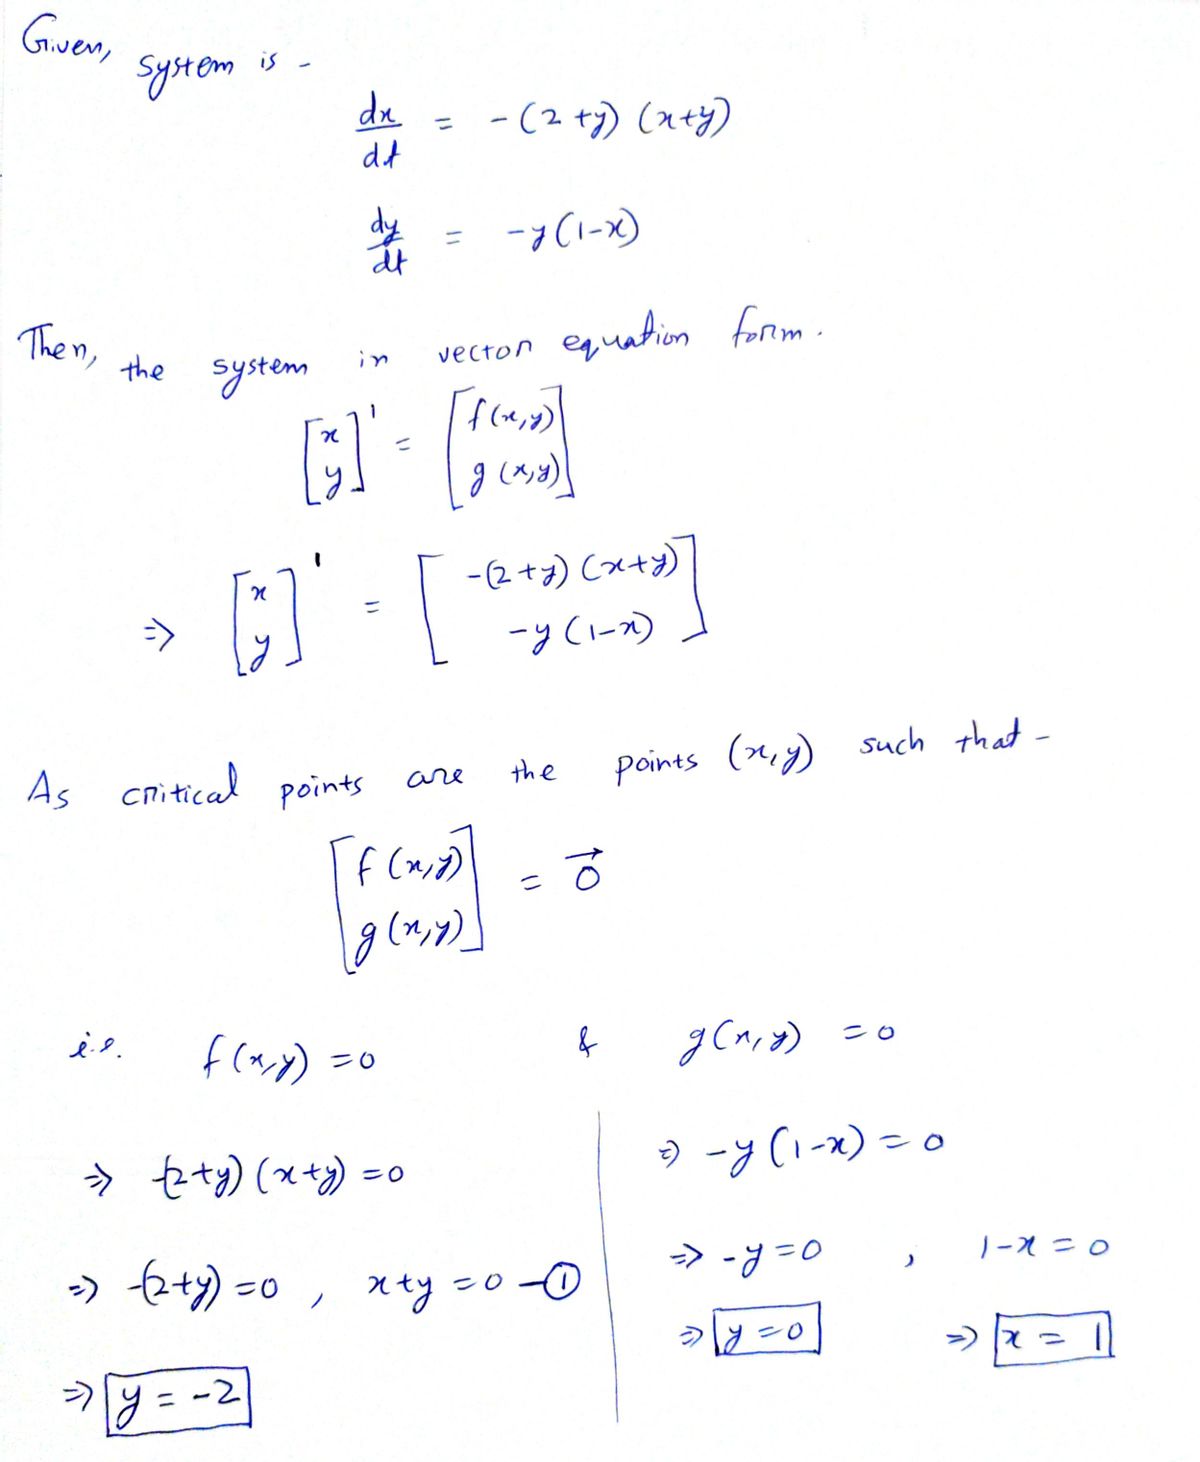 Given, system is -
dx/dt = - (2 + y) (x+y)
dy/dt = -y (1-x)
Then, the system in vector equation form.
[x y]' = [f(x,y) g(x,y)]
⇒ [x y]' = [-(2+y) (x+y) -y (1-x)]
As critical points are the points (x,y) such that -
[f(x,y) g(x,y)] = 0⃗
i.e. f(x,y) = 0 & g(x,y) = 0
⇒ -(2+y) (x+y) = 0
⇒ -(2+y) = 0 , x+y = 0 —①
⇒ y = -2
⇒ -y (1-x) = 0
⇒ -y = 0 , 1-x = 0
⇒ y = 0 ⇒ x = 1